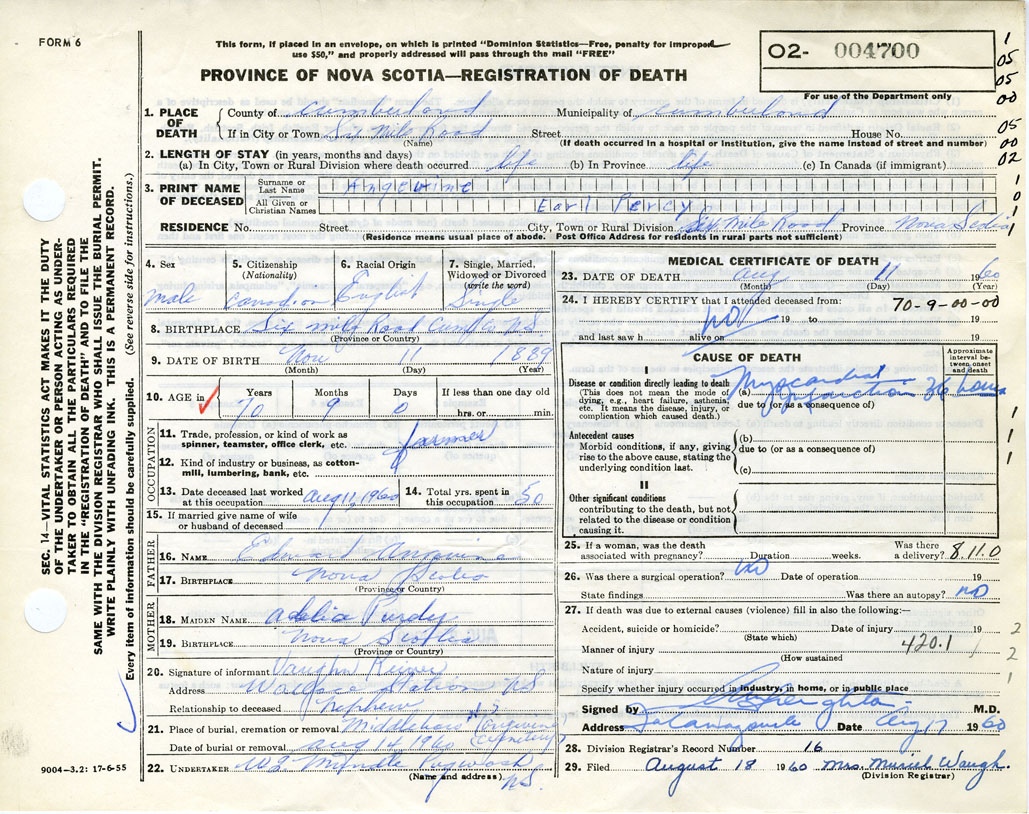 FORM 6
This form, if placed in an envelope, on which is printed "Dominion Statistics—Free, penalty for improper
use $50," and properly addressed will pass through the mail "FREE"
O2- 004700
For use of the Department only
PROVINCE OF NOVA SCOTIA—REGISTRATION OF DEATH
1
05
05
00
05
00
02
1
0
1
1
1. PLACE OF DEATH County of Cumberland Municipality of Cumberland
If in City or Town Six Mile Road Street House No.
(Name) (If death occurred in a hospital or Institution, give the name instead of street and number)
2. LENGTH OF STAY (in years, months and days)
(a) In City, Town or Rural Division where death occurred life (b) In Province life (c) In Canada (if immigrant)
3. PRINT NAME OF DECEASED Surname or Last Name Angevine
All Given or Christian Names Earl Percy
RESIDENCE No. Street City, Town or Rural Division Six Mile Road Province Nova Scotia
(Residence means usual place of abode. Post Office Address for residents in rural parts not sufficient)
4. Sex 5. Citizenship (Nationality) 6. Racial Origin 7. Single, Married, Widowed or Divorced (write the word)
Male Canadian English Single
8. BIRTHPLACE Six Mile Road Cum Co NS
(Province or Country)
9. DATE OF BIRTH Nov 11 1889
(Month) (Day) (year)
10. AGE in Years Months Days If less than one day old
70 9 0 hrs. or min.
OCCUPATION
11. Trade, profession, or kind of work as
spinner, teamster, office clerk, etc. farmer
12. Kind of industry or business, as cotton-
mill, lumbering, bank, etc.
13. Date deceased last worked at this occupation Aug 11, 1960 14. Total yrs. spent in this occupation 50
15. If married give name of wife
or husband of deceased
FATHER
16. NAME Edward Angevine
17. BIRTHPLACE Nova Scotia
(Province or Country)
MOTHER
18. MAIDEN NAME Adelia Purdy
19. BIRTHPLACE Nova Scotia
(Province or Country)
20. Signature of informant Vaughn
Address Wallace Station NS
Relationship to deceased nephew
21. Place of burial, cremation or removal Middleboro (Angevine Cemetery)
Date of burial or removal Aug 14, 1960
22. UNDERTAKER Pugwash NS.
(Name and address)
9004–3.2: 17-6-55
SEC. 14—VITAL STATISTICS ACT MAKES IT THE DUTY
OF THE UNDERTAKER OR PERSON ACTING AS UNDER-
TAKER TO OBTAIN ALL THE PARTICULARS REQUIRED
IN THE "REGISTRATION OF DEATH" AND FILE THE
SAME WITH THE DIVISION REGISTRAR WHO SHALL ISSUE THE BURIAL PERMIT.
WRITE PLAINLY WITH UNFADING INK. THIS IS A PERMANENT RECORD.
Every item of information should be carefully supplied. (See reverse side for instructions.)
MEDICAL CERTIFICATE OF DEATH
23. DATE OF DEATH Aug 11 1960
(Month) (Day) (Year)
24. I HEREBY CERTIFY that I attended deceased from: 70-9-00-00
no 19 to 19
and last saw h alive on 19
CAUSE OF DEATH
Approximate interval between onset and death
I
Disease or condition directly leading to death
(This does not mean the mode of
dying, e.g., heart failure, asthenia,
etc. It means the disease, injury, or
complication which caused death.)
(a) Myocardial Infarction 36 hours
due to (or as a consequence of)
Antecedent causes
Morbid conditions, if any, giving
rise to the above cause, stating the
underlying condition last.
(b)
due to (or as a consequence of)
(c)
1
1
1
II
Other significant conditions
contributing to the death, but not
related to the disease or condition
causing it.
25. If a woman, was the death
associated with pregnancy? Duration weeks. Was there a delivery? 8.11.0
26. Was there a surgical operation? No Date of operation 19
State findings Was there an autopsy? no
27. If death was due to external causes (violence) fill in also the following:—
Accident, suicide or homicide? Date of injury 19 2
(State which)
Manner of injury 420.1 2
(How sustained
Nature of injury 1
Specify whether injury occurred in industry, in home, or in public place
Signed by Creighton M.D.
Address Tatamagouche Date Aug 17 1960
28. Division Registrar's Record Number 16
29. Filed August 18 1960 Mrs. Muriel Waugh.
(Division Registrar)